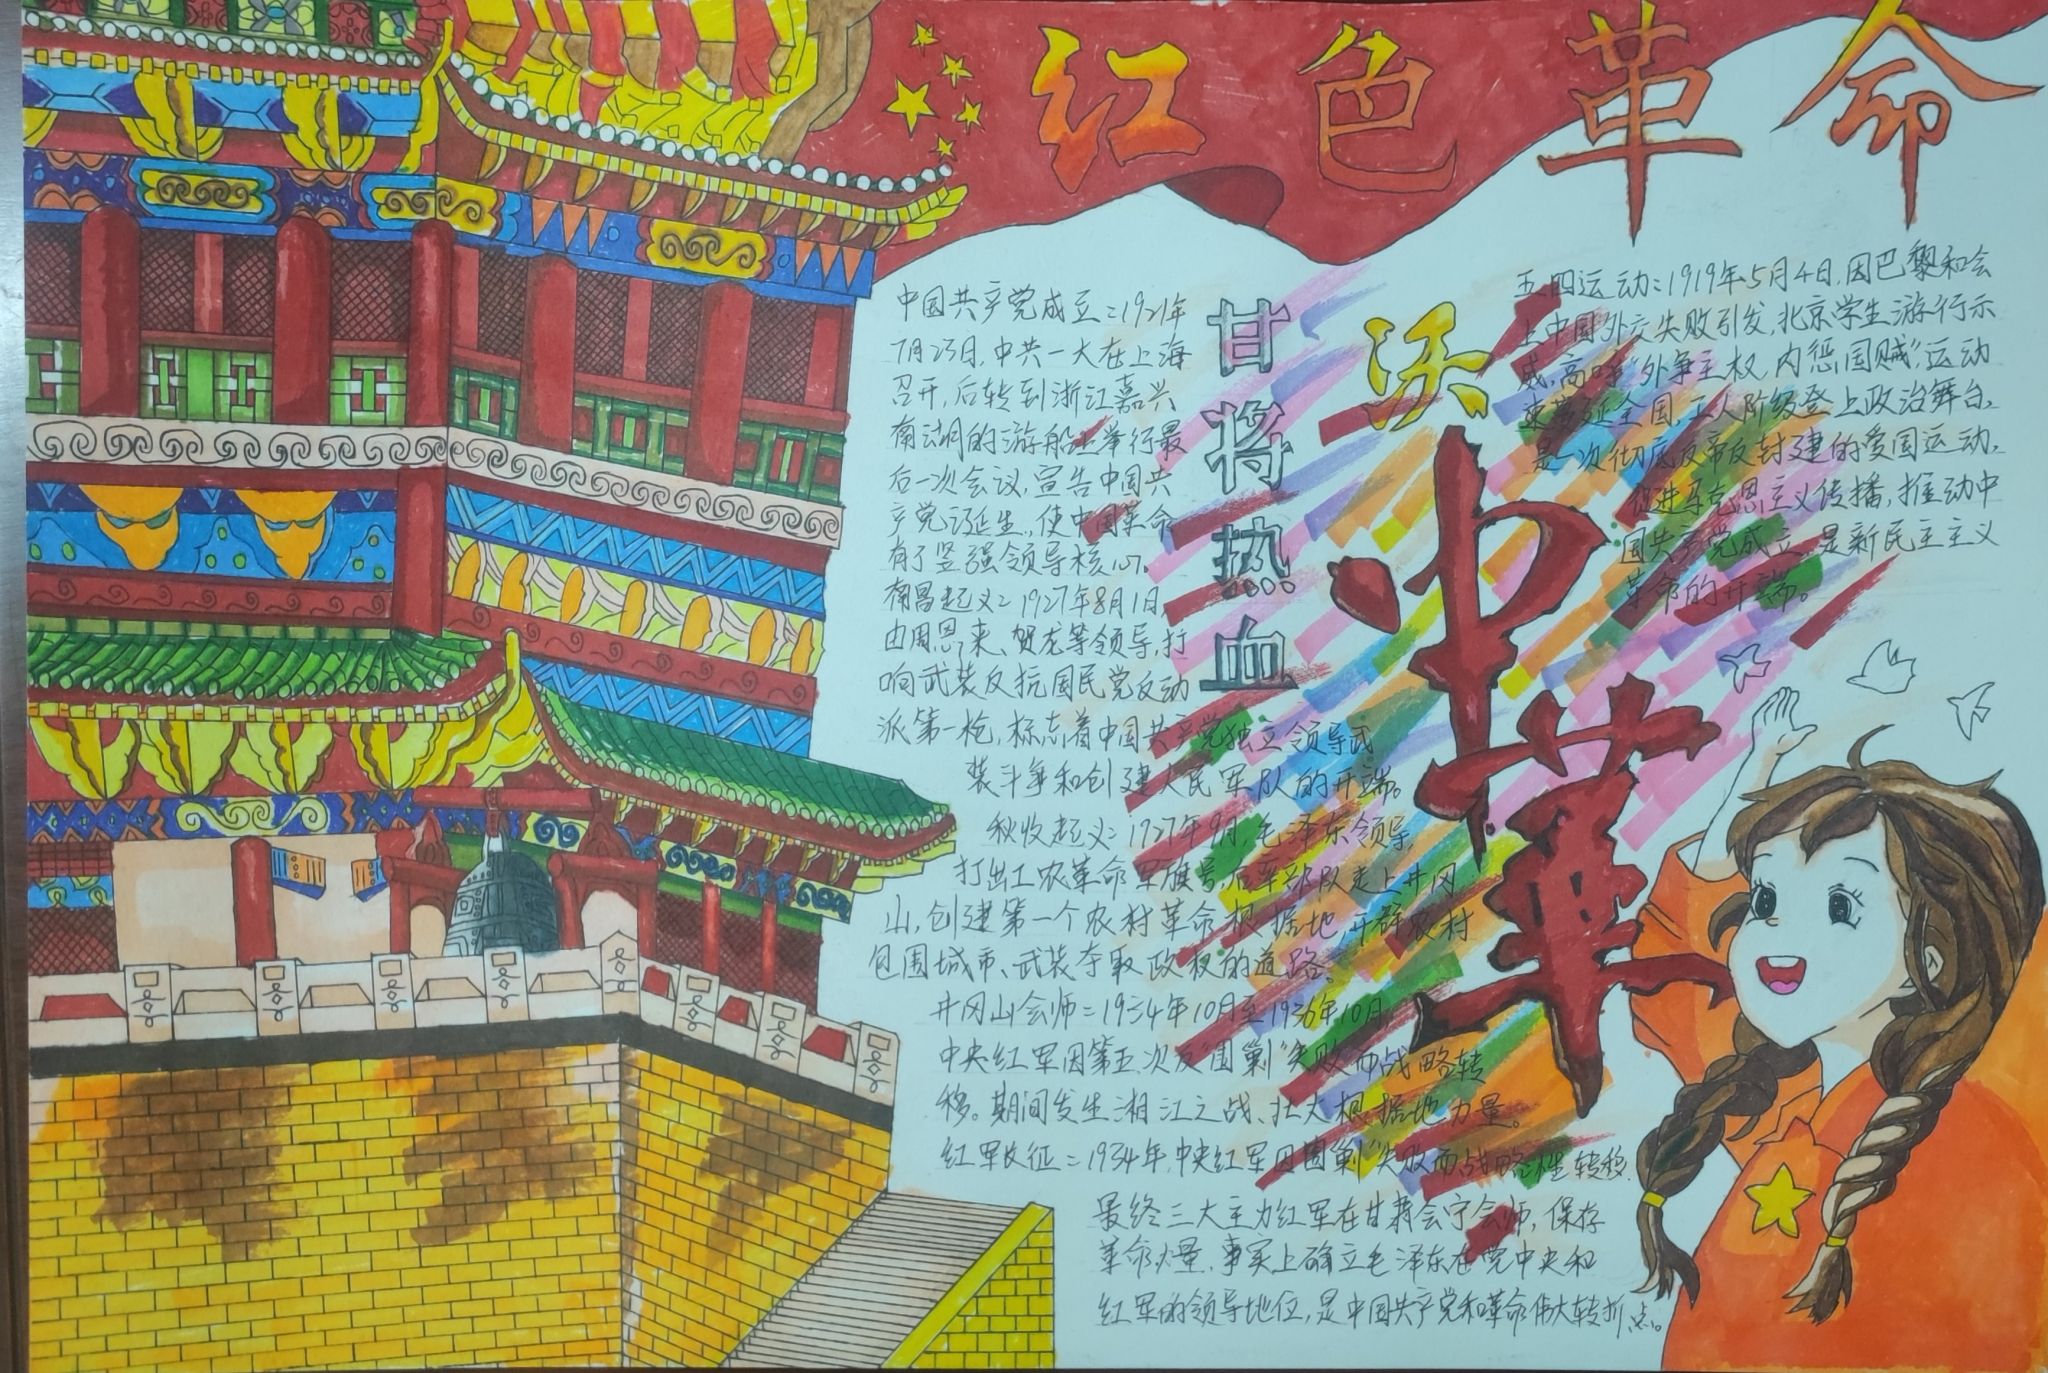 红色革命
中国共产党成立:1921年
7月23日,中共一大在上海
召开,后转到浙江嘉兴
南湖的游船上举行最
后一次会议,宣告中国共
产党诞生,使中国革命
有了坚强领导核心。
南昌起义:1927年8月1日
由周恩来、贺龙等领导,打
响武装反抗国民党反动
派第一枪,标志着中国共产党独立领导武
装斗争和创建人民军队的开端。
秋收起义:1927年9月,毛泽东领导,
打出工农革命军旗号,后率部队走上井冈
山,创建第一个农村革命根据地,开辟农村
包围城市、武装夺取政权的道路。
井冈山会师:1934年10月至1936年10月,
中央红军因第五次反"围剿"失败而战略转
移。期间发生湘江之战、壮大根据地力量。
红军长征:1934年,中央红军因"围剿"失败而战略性转移.
最终三大主力红军在甘肃会宁会师,保存
革命火量,事实上确立毛泽东在党中央和
红军的领导地位,是中国共产党和革命伟大转折点。
甘将热血
沃中華
五四运动:1919年5月4日,因巴黎和会
上中国外交失败引发,北京学生游行示
威,高呼"外争主权,内惩国贼"运动
速蔓延全国,工人阶级登上政治舞台。
是一次彻底反帝反封建的爱国运动,
促进马克思主义传播,推动中
国共产党成立,是新民主主义
革命的开端。